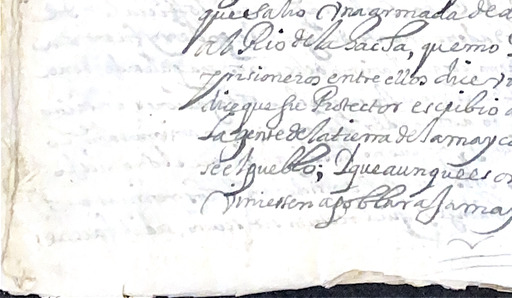 que salio Vna armada de a
al Rio de la hacha, quemo
prisioneros entre ellos dice
dice que su Protector escribio
la gente de la tierra de Jamayca
se el pueblo; Y que aunque es
Viniessen a poblar a Jamay